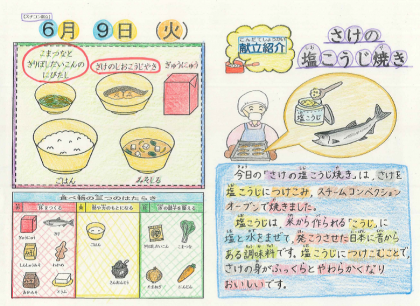 6月9日(火)
こまつなと
きりぼしだいこんの
にびたし
さけのしおこうじやき
ぎゅうにゅう
ごはん
みそしる
こんだてしょうかい
献立紹介
さけの
塩こうじ焼き
塩こうじ
食べ物の三つのはたらき
体をつくる
熱や力のもとになる
体の調子を整える
ごはん
こまつな
今日の"さけの塩こうじ焼き"は、さけを
塩こうじにつけこみ、スチームコンベクション
オーブンで焼きました。
塩こうじは、米から作られる"こうじ"に
塩と水をまぜて、発こうさせた日本に昔から
ある調味料です。塩こうじにつけこむことで、
さけの身がふっくらとやわらかくなり
おいしいです。